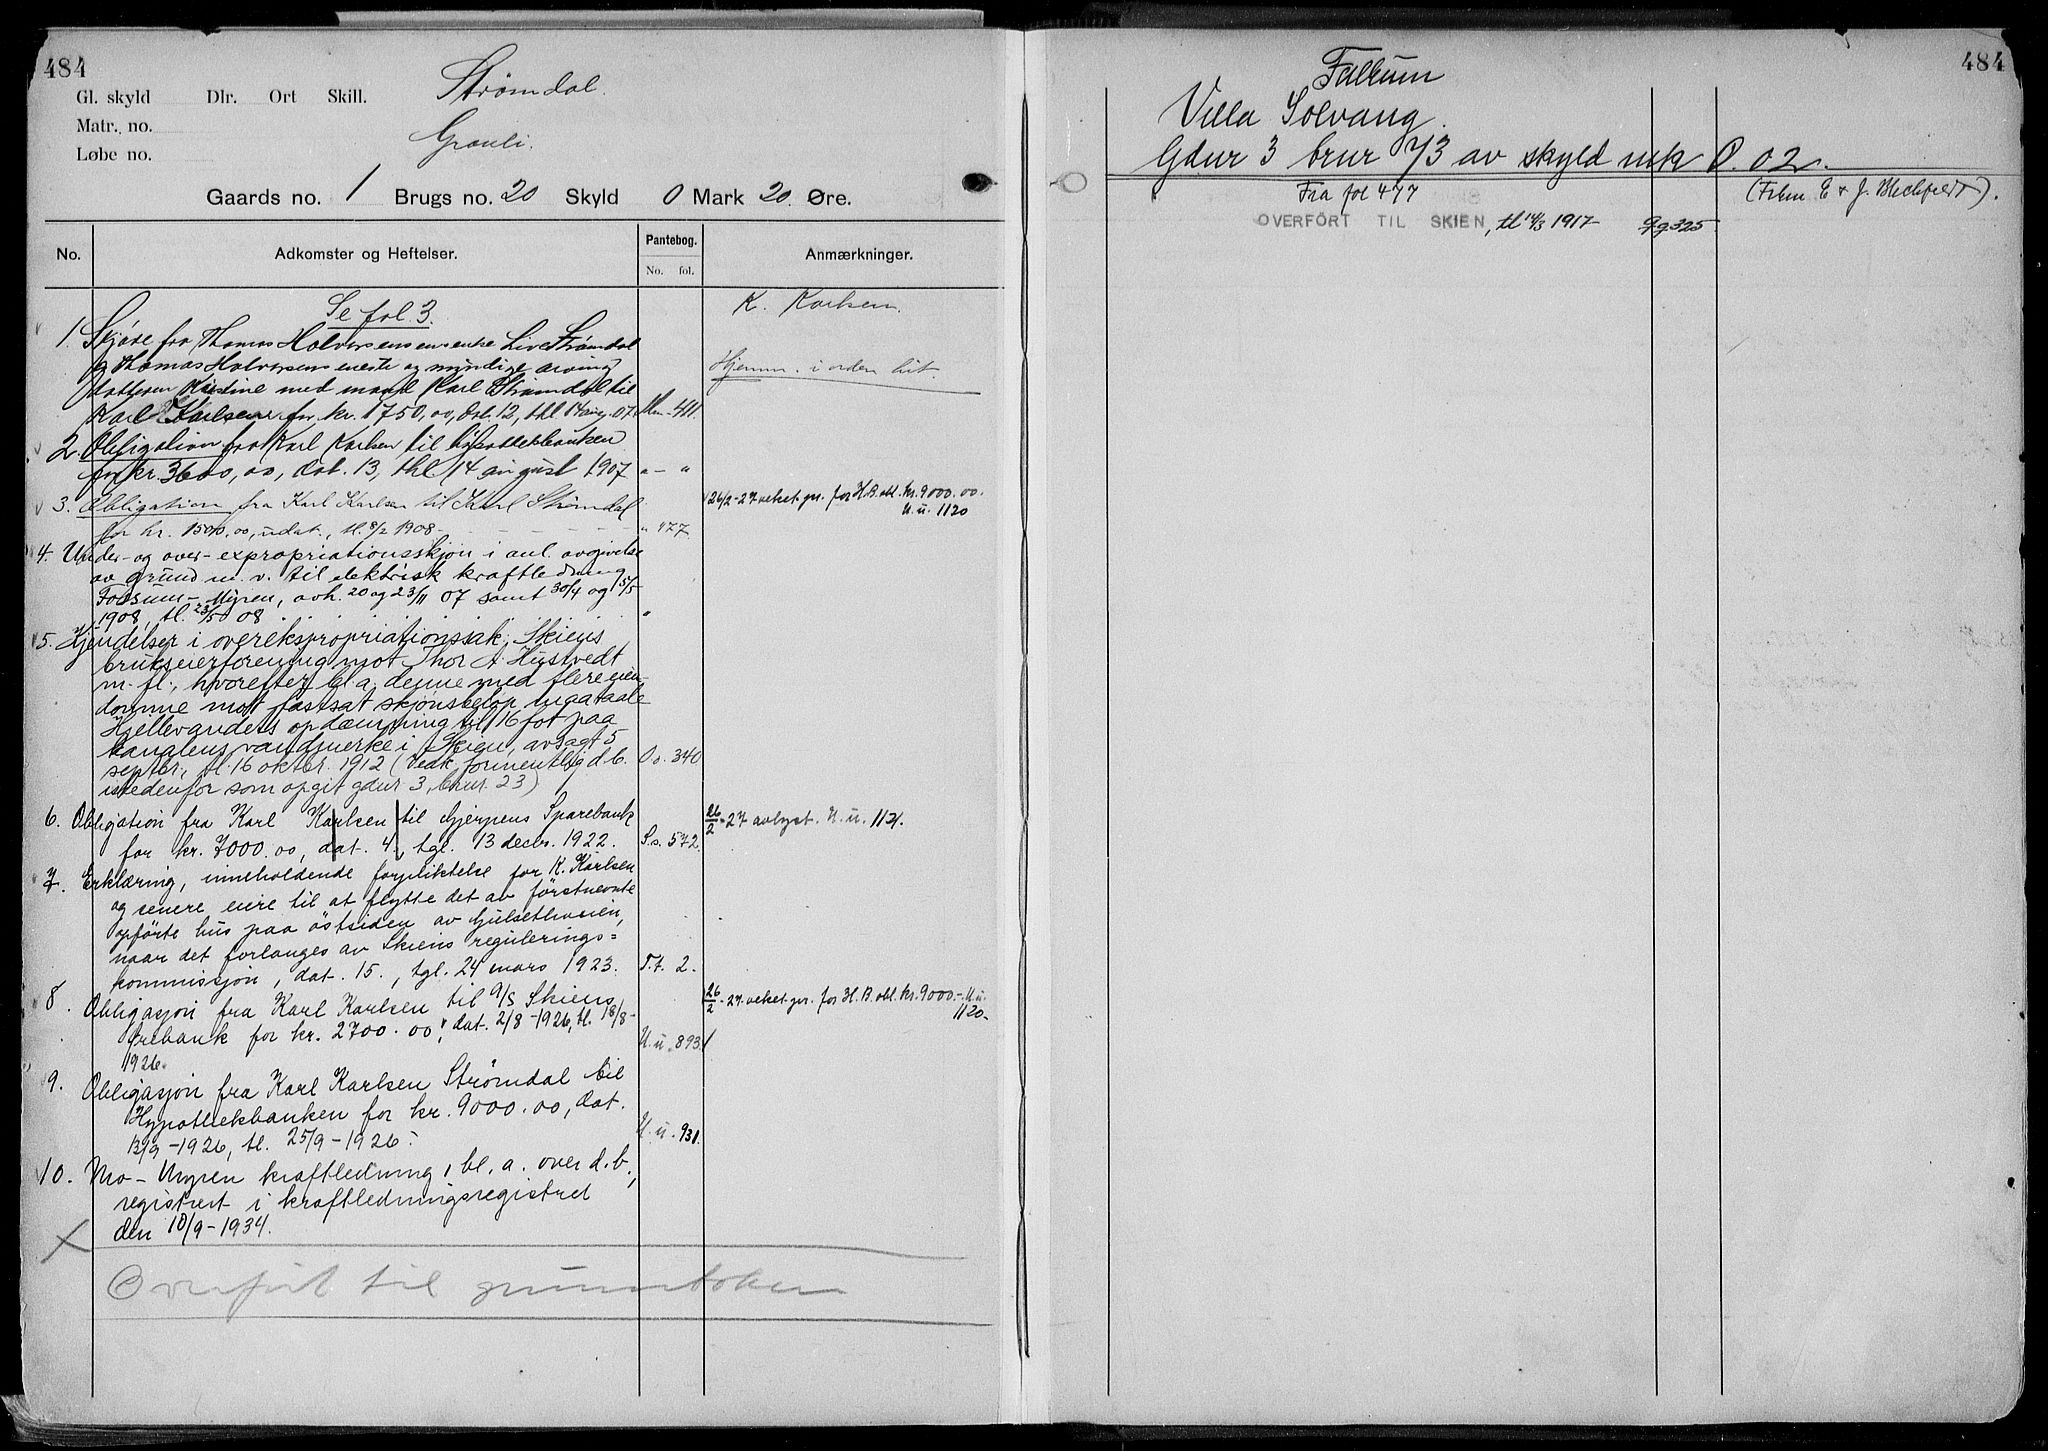 484
Strømdal.
Gl. skyld Dlr. Ort Skill.
Matr. no.
Løbe no.
Gaards no. 1 Brugs no. 20 Skyld 0 Mark 20 Øre.
No. Adkomster og Heftelser. Pantebog. No. fol. Anmærkninger.
Se fol. 3.
K. Karlsen.
1. Skjøte fra Thomas Halvorsens enke Live Strømdal
og Thomas Halvorsens eneste og myndige arving
datteren Kirstine med mand Karl Strømdal til
Hjemm. i orden hit.
Karl Karlsen for kr. 1750,00, dat. 12, thl 14 aug. 07. Mm - 411.
2. Obligation fra Karl Karlsen til Hypothekbanken
for kr. 3600,00, dat. 13, thl 14 august 1907 " - "
3. Obligation fra Karl Karlsen til Karl Strømdal
for kr. 1500,00, udat., tl. 8/2 1908 - " 477.
26/2-27 veket pr. for H.B. obl. kr. 9000.00.
U.u. 1120
4. Under- og over-expropriationsskjøn i anl. avgivelse
av grund m.v. til elektrisk kraftledning
Fossum - Myren, avh. 20 og 23/11 07 samt 30/4 og 15/5
1908, tl. 23/5 08. "
5. Kjendelser i overekspropriationssak, Skiens
brukseierforening mot Thor A. Hustvedt
m. fl., hvorefter bl. a. denne med flere eien-
domme mot fastsat skjønsbeløp maa taale
Hjellevandets opdæmning til 16 fot paa
kanalens vandmerke i Skien, avsagt 5
septbr., tl. 16 oktbr. 1912 (Vedk. formentlig d.b. Oo. 340
istedenfor som opgit gdnr 3, brnr. 23)
6. Obligation fra Karl Karlsen til Gjerpens Sparebank
for kr. 7000.00, dat. 4., tgl. 13 decbr. 1922. S.s. 572.
26/2-27 avlyst. U.u. 1121.
7. Erklæring, inneholdende forpliktelse for K. Karlsen
og senere eiere til at flytte det av førstnevnte
opførte hus paa östsiden av Gjulsethveien,
naar det forlanges av Skiens regulerings=
kommissjon, dat. 15., tgl. 24 mars 1923. T.t. 2.
8. Obligasjon fra Karl Karlsen til A/S Skiens
26/2-27 veket pr. for H.B. obl. kr. 9000.- U.u.
1120-
for kr. 2700.00, dat. 2/8-1926, tl. 18/8-
1926. U.u. 893.
9. Obligasjon fra Karl Karlsen Strømdal til
Hypothekbanken for kr. 9000.00, dat.
13/9-1926, tl. 25/9-1926. U.u. 931.
10. Mo - Myren kraftledning, bl. a. over d.b.,
registrert i kraftledningsregistret
den 10/9-1934.
Overført til grunnboken
484
Falkum
Villa Solvang.
Gdnr 3 brnr 73 av skyld mk 0.02.
Fra fol 477
OVERFÖRT TIL SKIEN, tl 14/3 1917 Qq 325